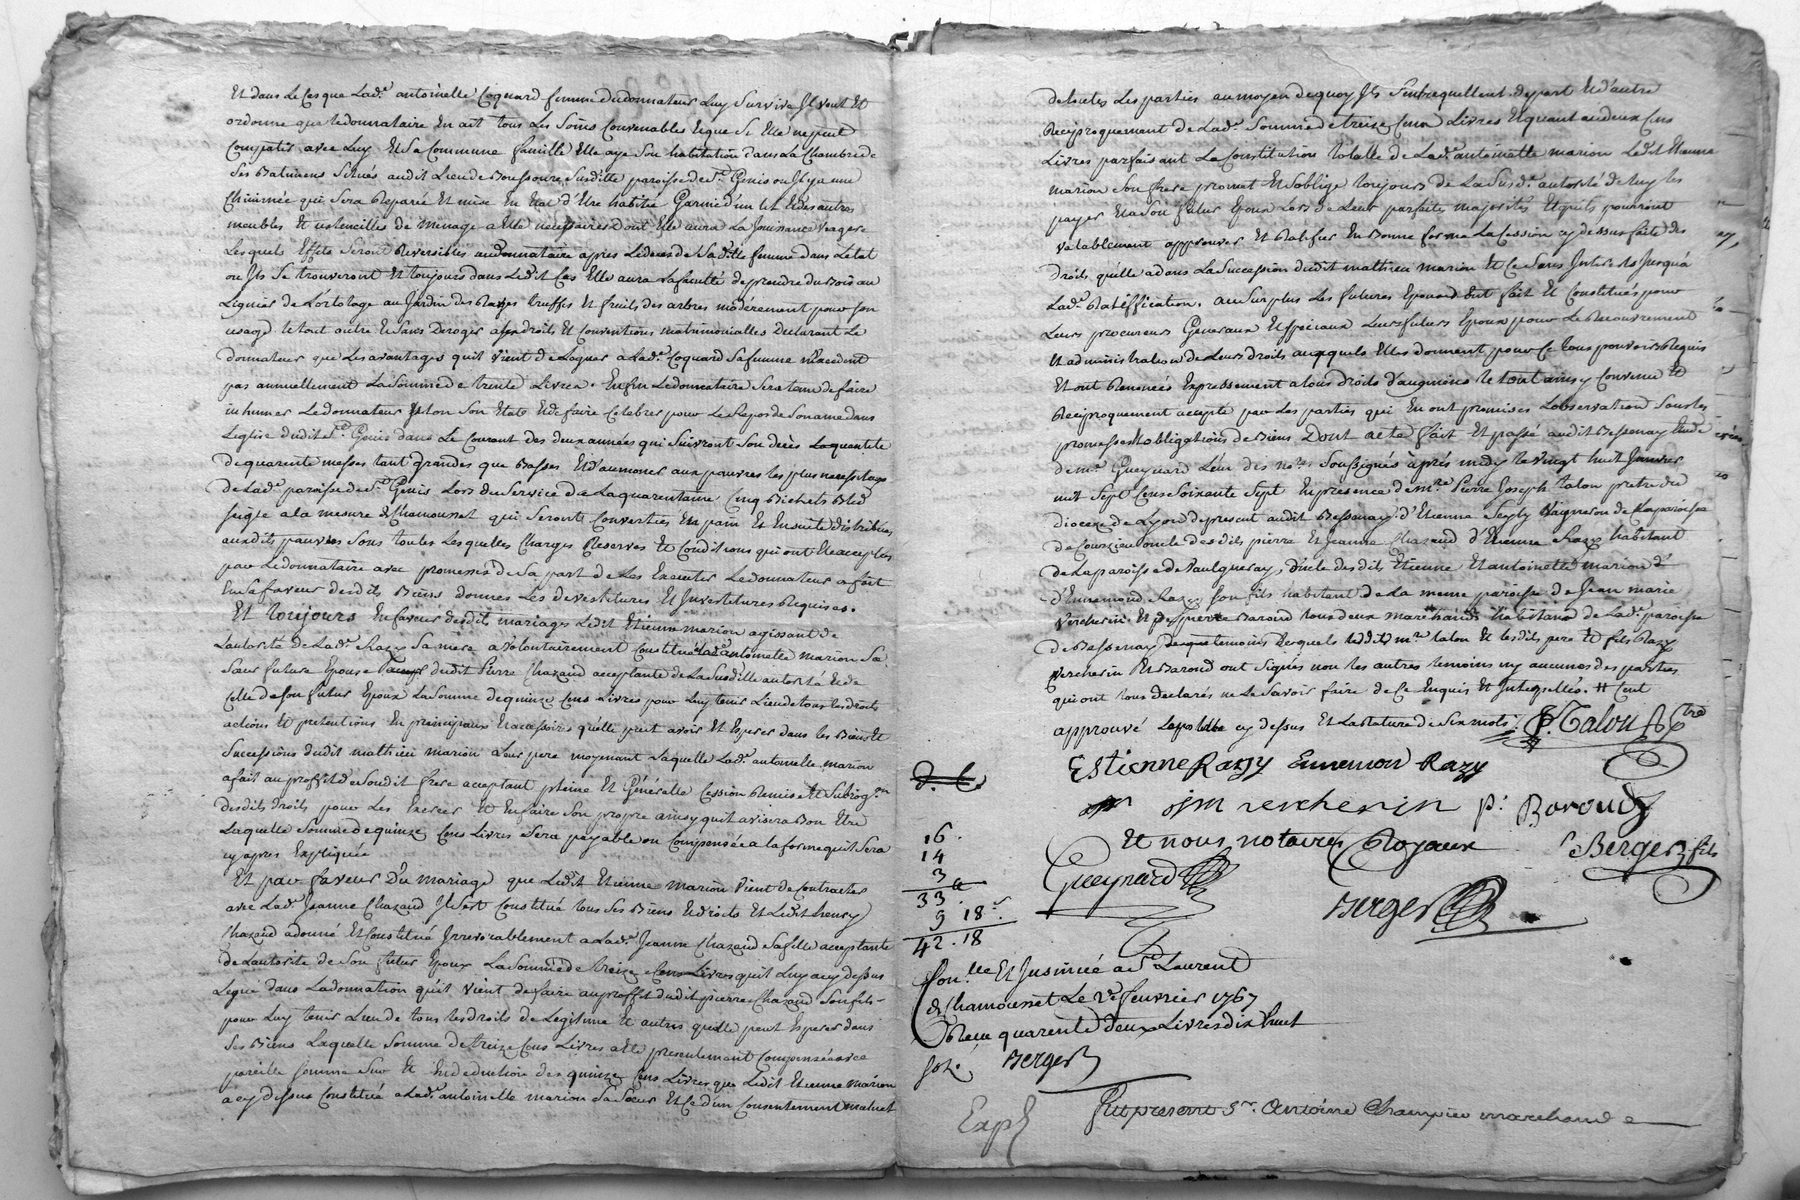 Et dans Le Cas que Lad.e antoinelle Coquard femme dudonnateur Luy Survive Il veut Et
ordonne que ledonnataire En ait tous Les Soins Convenables Eque Si Elle ne peut
Compatir avec Luy Et Sa Commune famille Elle aye Son habitation dans La Chambre de
Ses Batimens Situés audit Lieu de Boussoure Susditte paroisse de St. Genis ou Il y a une
Chiminée qui Sera Reparée Et mise En Etat d'Etre habitée Garnie d'un Lit Et des autres
meubles Et ustencilles de menage a Elle necessaires Dont Elle aura La Jouissance viagere
Lesquels Effets Seront Reversibles audonnataire apres Le deces de Saditte femme dans L'etat
ou Ils Se trouveront Et toujours dans Ledit Cas Elle aura La faculté de prendre du Bois au
Lignier de L'ortolage au Jardin des Raves truffes Et fruits des arbres modérement pour Son
usage le tout outre Et Sans Deroger a Ses droits Et Conventions matrimonialles Declarant Le
donnateur que Les avantages quil vient de Leguer a Lad.e Coquard Sa femme n'Excedent
pas annuellement La Somme de trente Livres. Enfin Ledonnataire Sera tenu de faire
inhumer Ledonnateur Selon Son Etat Et de faire Celebrer pour Le Repos de Son ame dans
L'eglise dudit St. Genis dans Le Courant des deux années qui Suivront Son décès La quantité
de quarente messes tant grandes que Basses Et d'aumoner aux pauvres les plus necessiteux
de Lad.e paroisse de St. Genis Lors du Service de La quarentaine Cinq Bichets Bled
seigle a la mesure de Chamousset qui Seront Convertis En pain Et Ensuite distribués
auxdits pauvres Sous toutes Lesquelles Charges Reserves Et Conditions qui ont Eté acceptées
par Ledonnataire avec promesse de Sa part de Les Executer Le donnateur a fait
En Sa faveur desdits Biens donnés Les devestitures Et Investitures Requises.
Et toujours En faveur desdits mariages Ledit Etienne marion agissant de
L'autorité de Lad.e Razy Sa mere a volontairement Constitué a Lad.e antoinette marion Sa
Sœur future Epouse dudit Pierre Chazaud acceptante de La Susditte autorité Et de
Celle de Son futur Epoux La Somme de quinze Cens Livres pour Luy tenir Lieu de tous les droits
actions Et pretentions En principaux Et accessoires qu'elle peut avoir Et Esperer dans les Biens Et
Successions dudit mathieu marion Leur pere moyenant Laquelle Lad.e antoinelle marion
a fait au proffit de Soudit frere acceptant pleine Et Générelle Cession Remise Et Subrog.on
desdits droits pour Les Exercer Et En faire Son propre ainsy quil avisera Bon Etre
Laquelle Somme de quinze Cens Livres Sera payable ou Compensée a la forme quil Sera
cy apres Expliquée
Et par faveur D'u mariage que Ledit Etienne marion vient de Contracter
avec Lad.e Jeanne Chazaud Il S'est Constitué tous Ses Biens Et droits Et Ledit henry
Chazaud a donné Et Constitué Irrevocablement a Lad.e Jeanne Chazaud Sa fille acceptante
de L'autorité de Son futur Epoux La Somme de treize Cens Livres quil Luy a cy dessus
Legué dans La donnation qu'il vient de faire au proffit dudit pierre Chazaud Son fils
pour Luy tenir Lieu de tous les droits de Legitime Et autres qu'elle peut Esperer dans
Ses Biens Laquelle Somme de treize Cens Livres a Eté presentement Compensée avec
pareille Somme Sur Et En deduction des quinze Cens Livres que Ledit Etienne marion
a cy dessus Constitué a Lad.e antoinelle marion Sa Sœur Et Ce d'un Consentement mutuel
de toutes Les parties au moyen de quoy Ils S'entrequittent de part Et d'autre
Reciproquement de Lad.e Somme de treize Cens Livres Et quant aux deux Cens
Livres parfaisant La Constitution totalle de Lad.e antoinette marion Ledit Etienne
marion Son frere promet Et S'oblige toujours de La Susd.e autorité de Luy les
payer Et a Son futur Epoux Lors de Leur parfaite majorités Et quils pourront
valablement approuver Et Ratifier En Bonne forme La Cession cy dessus faite des
droits qu'elle a dans La Succession dudit mathieu marion Et Ce Sans Interets Jusqu'a
Lad.e Ratiffication. au Surplus Les futures Epouses Ont fait Et Constitués pour
Leurs procureurs Generaux Et Speciaux Leurs futurs Epoux pour Le Recouvrement
Et administration de Leurs droits auxquels Elles donnent pour Ce tous pouvoirs Requis
Et ont Renoncés Expressement a tous droits d'augmens le tout ainsy Convenu Et
Reciproquement accepté par Les parties qui En ont promises L'observation Sous les
promesses Et obligations de Biens Dont acte fait Et passé audit Bessenay Etude
de me. Gueynard L'un des nres. Soussignés après midy le vingt huit Janvier
mil Sept Cens Soixante Sept En presence de mre. Pierre Joseph Talon pretre du
diocese de Lyon de present audit Bessenay d'Etienne Vigneron de La paroisse
de Courzieu oncle desdits pierre Et Jeanne Chazaud d'Etienne Razy habitant
de La paroisse de Paulgueray, oncle desdits Etienne Et antoinette marion Et
d'Ennemond Razy Son fils habitant de La meme paroisse de Jean marie
Vercherin Et de pierre Baroud tous deux marchands habitans de Lad.e paroisse
de Bessenay temoins Lesquels Ledit mre. talon Et lesdits pere Et fils Razy
Vercherin Et Baroud ont Signés non les autres temoins ny aucunes des parties
qui ont tous declarés ne Le Savoir faire de Ce Enquis Et Interpellés. # Cent
approuvé L'apostille cy dessus Et La Rature de Six mots. J. Talon ptre
Estienne Razy Ennemon Razy
jm vercherin p: Baroud
Et nous notaires Royaux
Berger fils
Gueynard
Berger
d. C.
16.
14
3
33.
9 18s.
42. 18
Con.lle Et Insinué a St. Laurent
de Chamousset Le 2e. fevrier 1767
Reçu quarente deux Livres dix huit
sols. Berger
Exp.
fut present Sr. Antoine Champier marchand